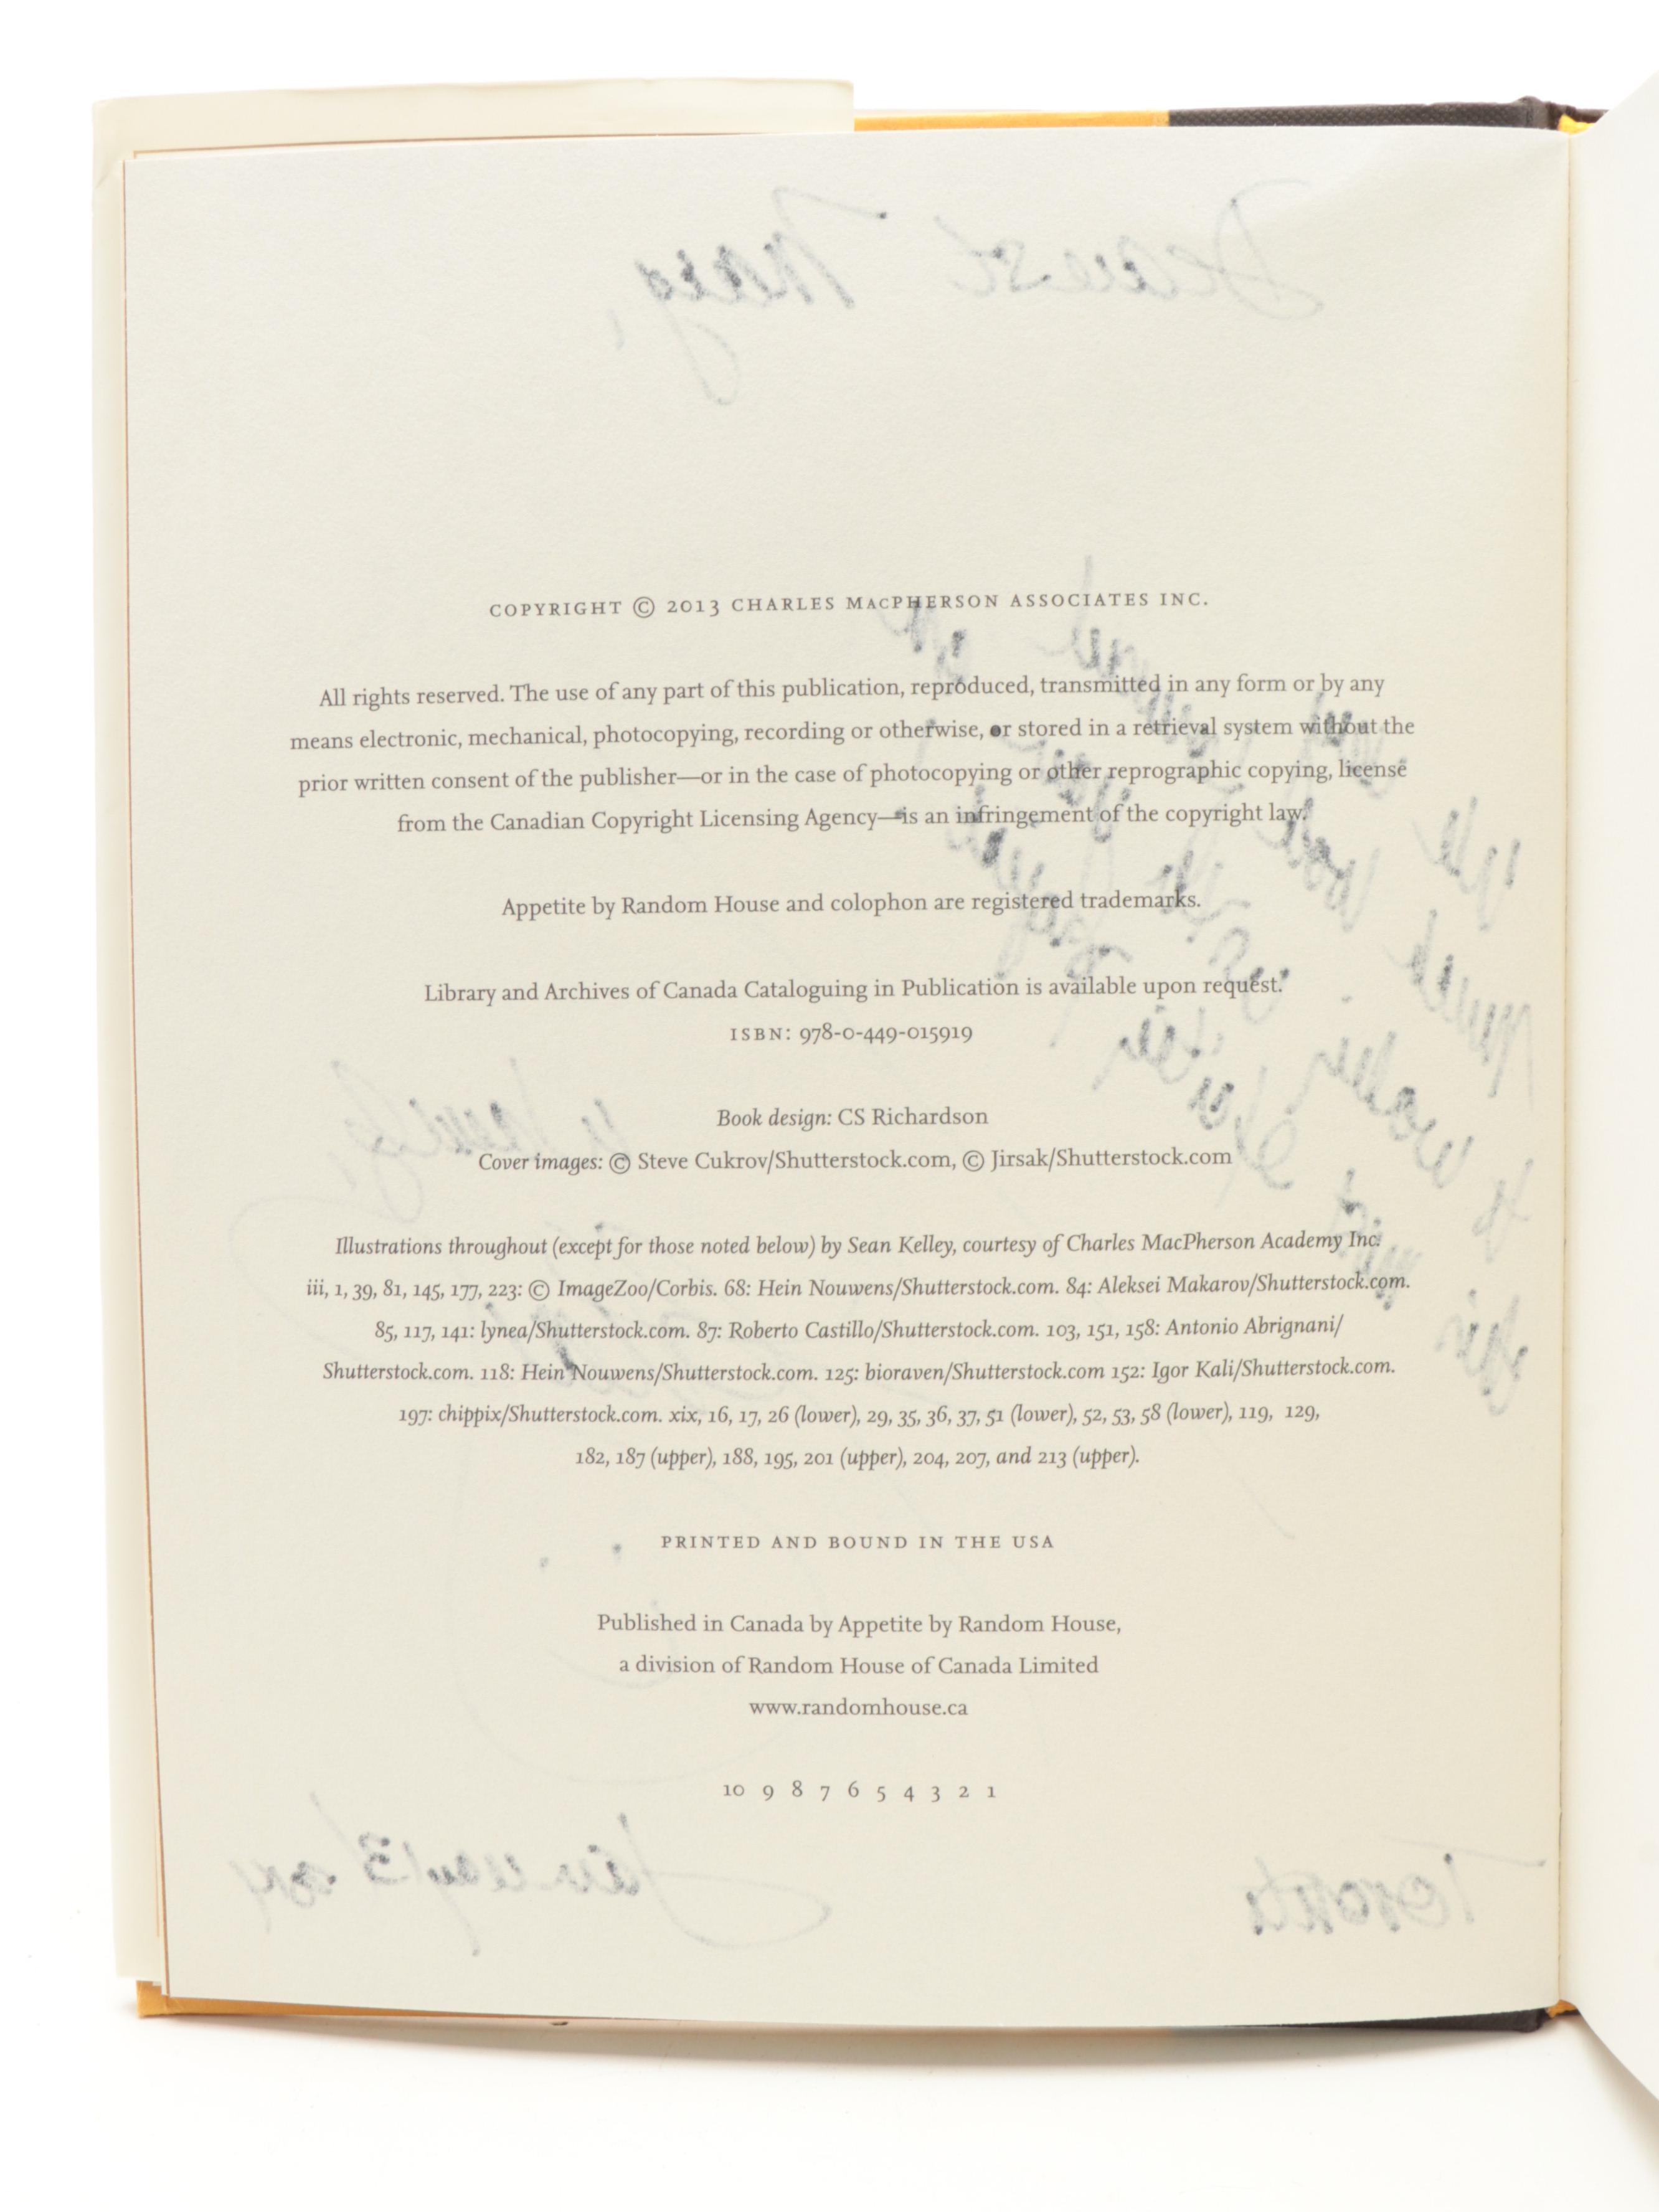 COPYRIGHT © 2013 CHARLES MACPHERSON ASSOCIATES INC.
All rights reserved. The use of any part of this publication, reproduced, transmitted in any form or by any
means electronic, mechanical, photocopying, recording or otherwise, or stored in a retrieval system without the
prior written consent of the publisher—or in the case of photocopying or other reprographic copying, license
from the Canadian Copyright Licensing Agency—is an infringement of the copyright law.
Appetite by Random House and colophon are registered trademarks.
Library and Archives of Canada Cataloguing in Publication is available upon request.
ISBN: 978-0-449-015919
Book design: CS Richardson
Cover images: © Steve Cukrov/Shutterstock.com, © Jirsak/Shutterstock.com
Illustrations throughout (except for those noted below) by Sean Kelley, courtesy of Charles MacPherson Academy Inc.
iii, 1, 39, 81, 145, 177, 223: © ImageZoo/Corbis. 68: Hein Nouwens/Shutterstock.com. 84: Aleksei Makarov/Shutterstock.com.
85, 117, 141: lynea/Shutterstock.com. 87: Roberto Castillo/Shutterstock.com. 103, 151, 158: Antonio Abrignani/
Shutterstock.com. 118: Hein Nouwens/Shutterstock.com. 125: bioraven/Shutterstock.com 152: Igor Kali/Shutterstock.com.
197: chippix/Shutterstock.com. xix, 16, 17, 26 (lower), 29, 35, 36, 37, 51 (lower), 52, 53, 58 (lower), 119, 129,
182, 187 (upper), 188, 195, 201 (upper), 204, 207, and 213 (upper).
PRINTED AND BOUND IN THE USA
Published in Canada by Appetite by Random House,
a division of Random House of Canada Limited
www.randomhouse.ca
10 9 8 7 6 5 4 3 2 1